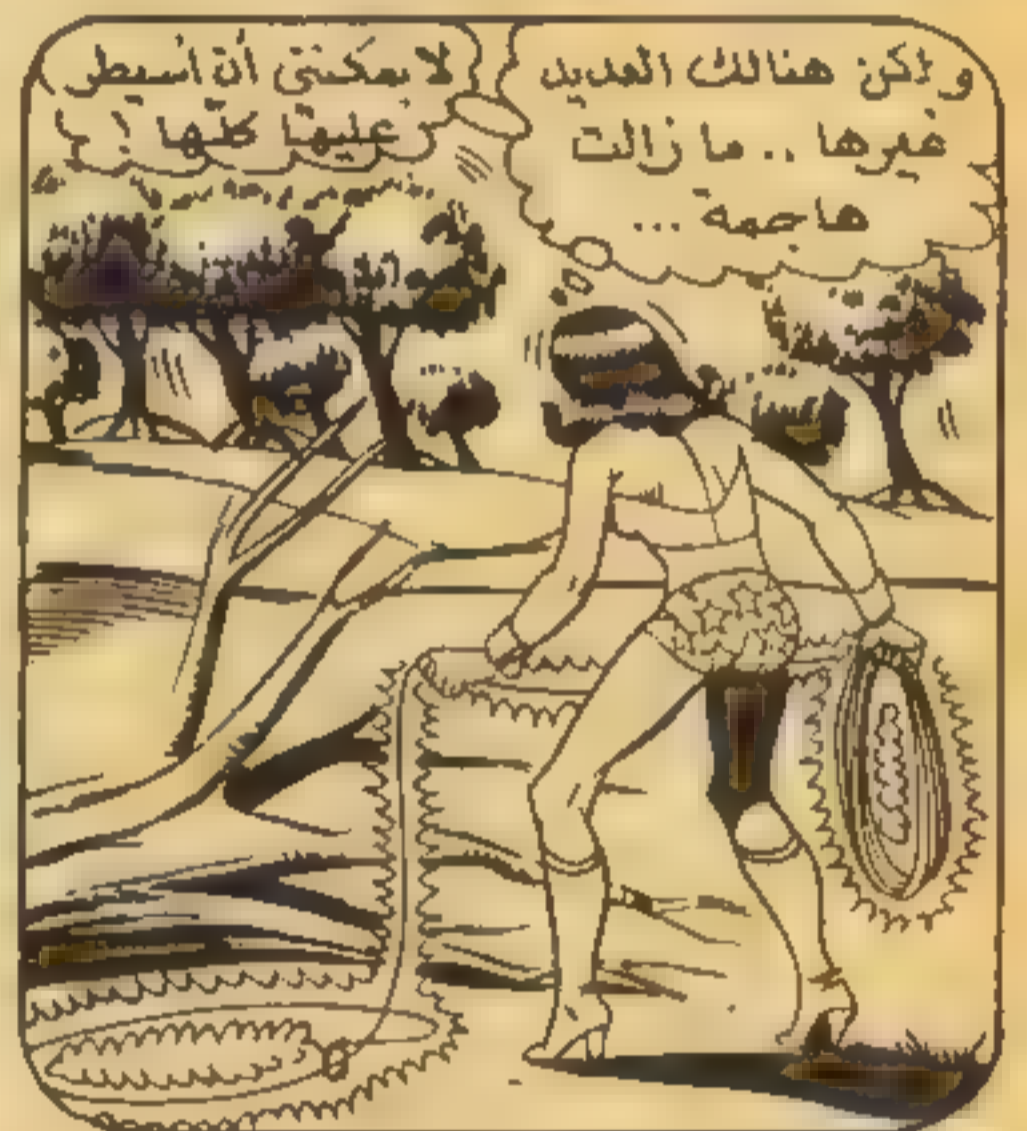 ولكن هنالك العديد
غيرها .. ما زالت
هاجمة ...
لا يمكننى أن أسيطر
عليها كلها !